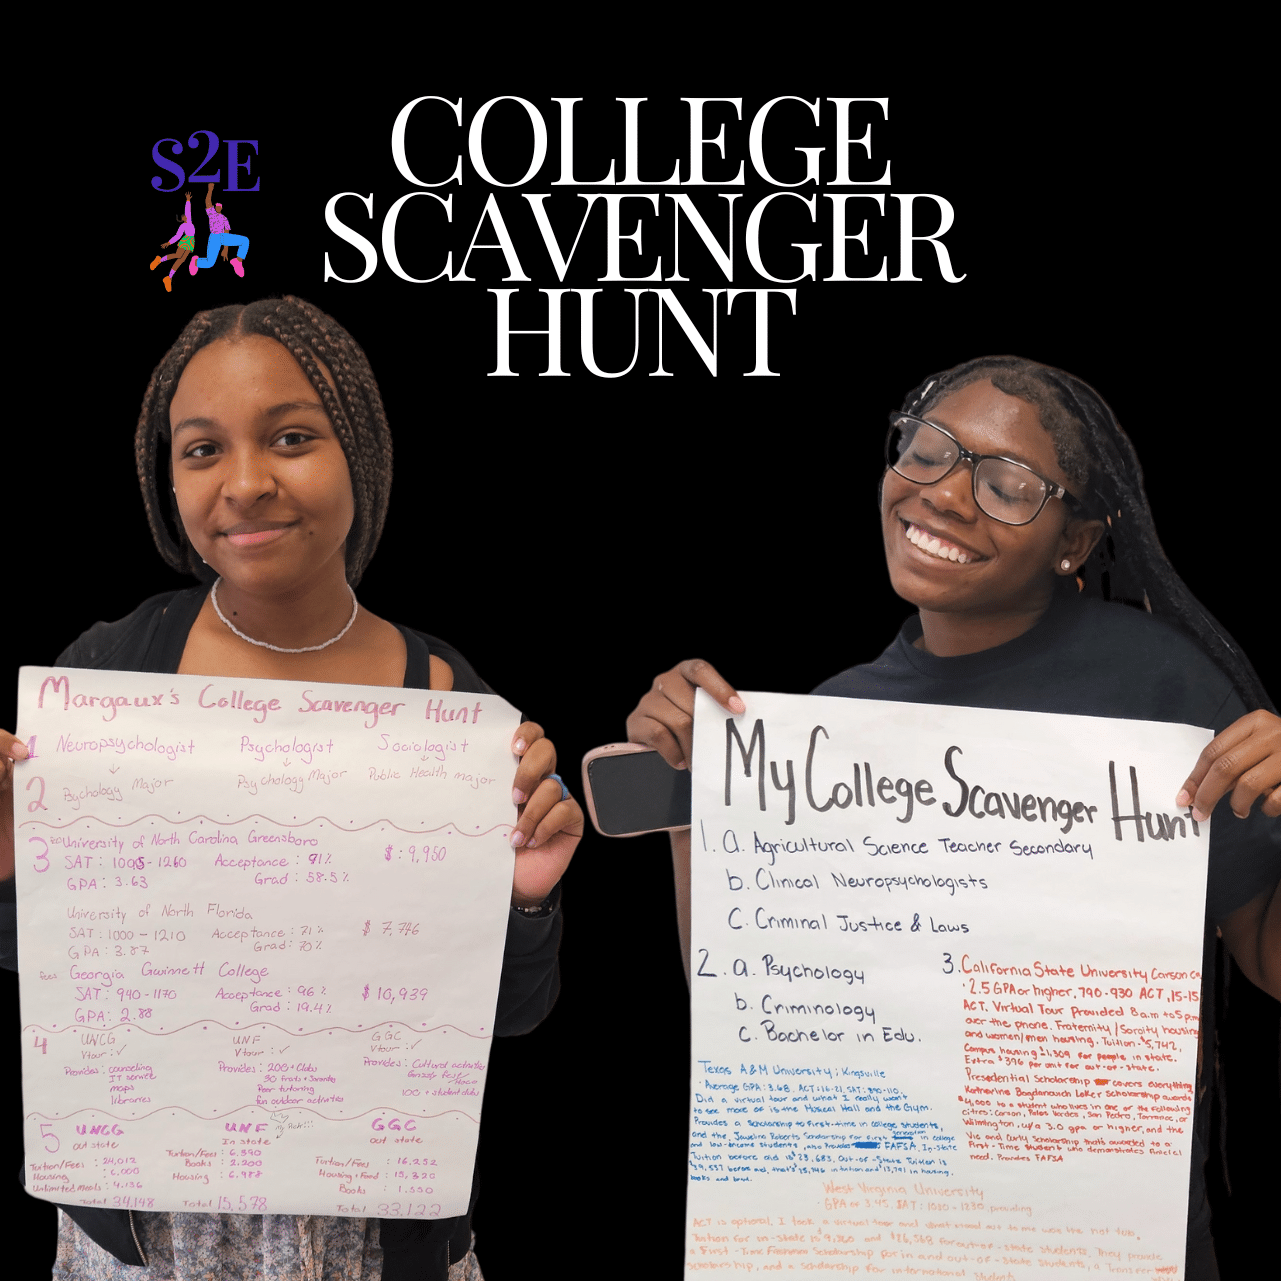 S2E
COLLEGE
SCAVENGER
HUNT
Margaux's College Scavenger Hunt
1 Neuropsychologist Psychologist Sociologist
2 Psychology Major Psychology Major Public Health major
3 University of North Carolina Greensboro
SAT: 1095-1260 Acceptance: 91% $: 9,950
GPA: 3.63 Grad: 58.5%
University of North Florida
SAT: 1000-1210 Acceptance: 71% $ 7,746
GPA: 3.87 Grad: 70%
fees Georgia Gwinnett College
SAT: 940-1170 Acceptance: 96% $ 10,939
GPA: 2.88 Grad: 19.4%
4 UNCG UNF GGC
Vtour: ✓ Vtour: ✓ Vtour: ✓
Provides: counseling Provides: 200+ Clubs Provides: Cultural activities
IT service
maps Peer tutoring 100 + student clubs
libraries fun outdoor activities
5 UNCG UNF GGC
out state In state out state
Tuition/Fees: 24,012 Tuition/Fees: 6,390 Tuition/Fees: 16,252
Housing: 6,000 Books: 2,200 Housing + Food: 15,320
Unlimited meals: 4,136 Housing: 6,988 Books: 1,550
Total 34,148 Total 15,578 Total 33,122
My College Scavenger Hunt
1. a. Agricultural Science Teacher Secondary
b. Clinical Neuropsychologists
C. Criminal Justice & Laws
2. a. Psychology
b. Criminology
c. Bachelor in Edu.
3. California State University Carson Ca
· 2.5 GPA or higher, 790-930 ACT, 15-15
ACT. Virtual Tour Provided 8 a.m to 5 p.m
over the phone. Fraternity/Sorority housing
and women/men housing. Tuition-$5,742.
Campus housing $1,309 for people in state.
Extra $396 per unit for out-of-state.
Presedential Scholarship covers everything
Katherine Bogdanovich Loker Scholarship awards
$4,000 to a student who lives in one of the following
cities: Carson, Palos Verdes, San Pedro, Torrance, or
Wilmington, w/a 3.0 gpa or higher, and the
Vic and Cathy Scholarship that's awarded to a
First-Time Student who demonstrates financial
need. Provides FAFSA
Texas A&M University; Kingsville
· Average GPA: 3.68. ACT: 16-21, SAT:
Did a virtual tour and what I really want
to see more of is the Musical Hall and the Gym.
Provides a Scholarship to First-time in college students,
and the Javelina Roberts Scholarship for first generation in college
and low-income students, also Provides FAFSA. In-State
Tuition before aid is $23,683, out-of-State Tuition is
books and
West Virginia University
· GPA of 3.45, SAT: 1030-1230, providing
ACT is optional. I took a virtual tour and what stood out to me was the
Tuition for in-state is $9,360 and $26,568 for out-of-state students. They provide
a First-Time Freshman Scholarship for in and out-of-state students, a Transfer
scholarship, and a scholarship for international students